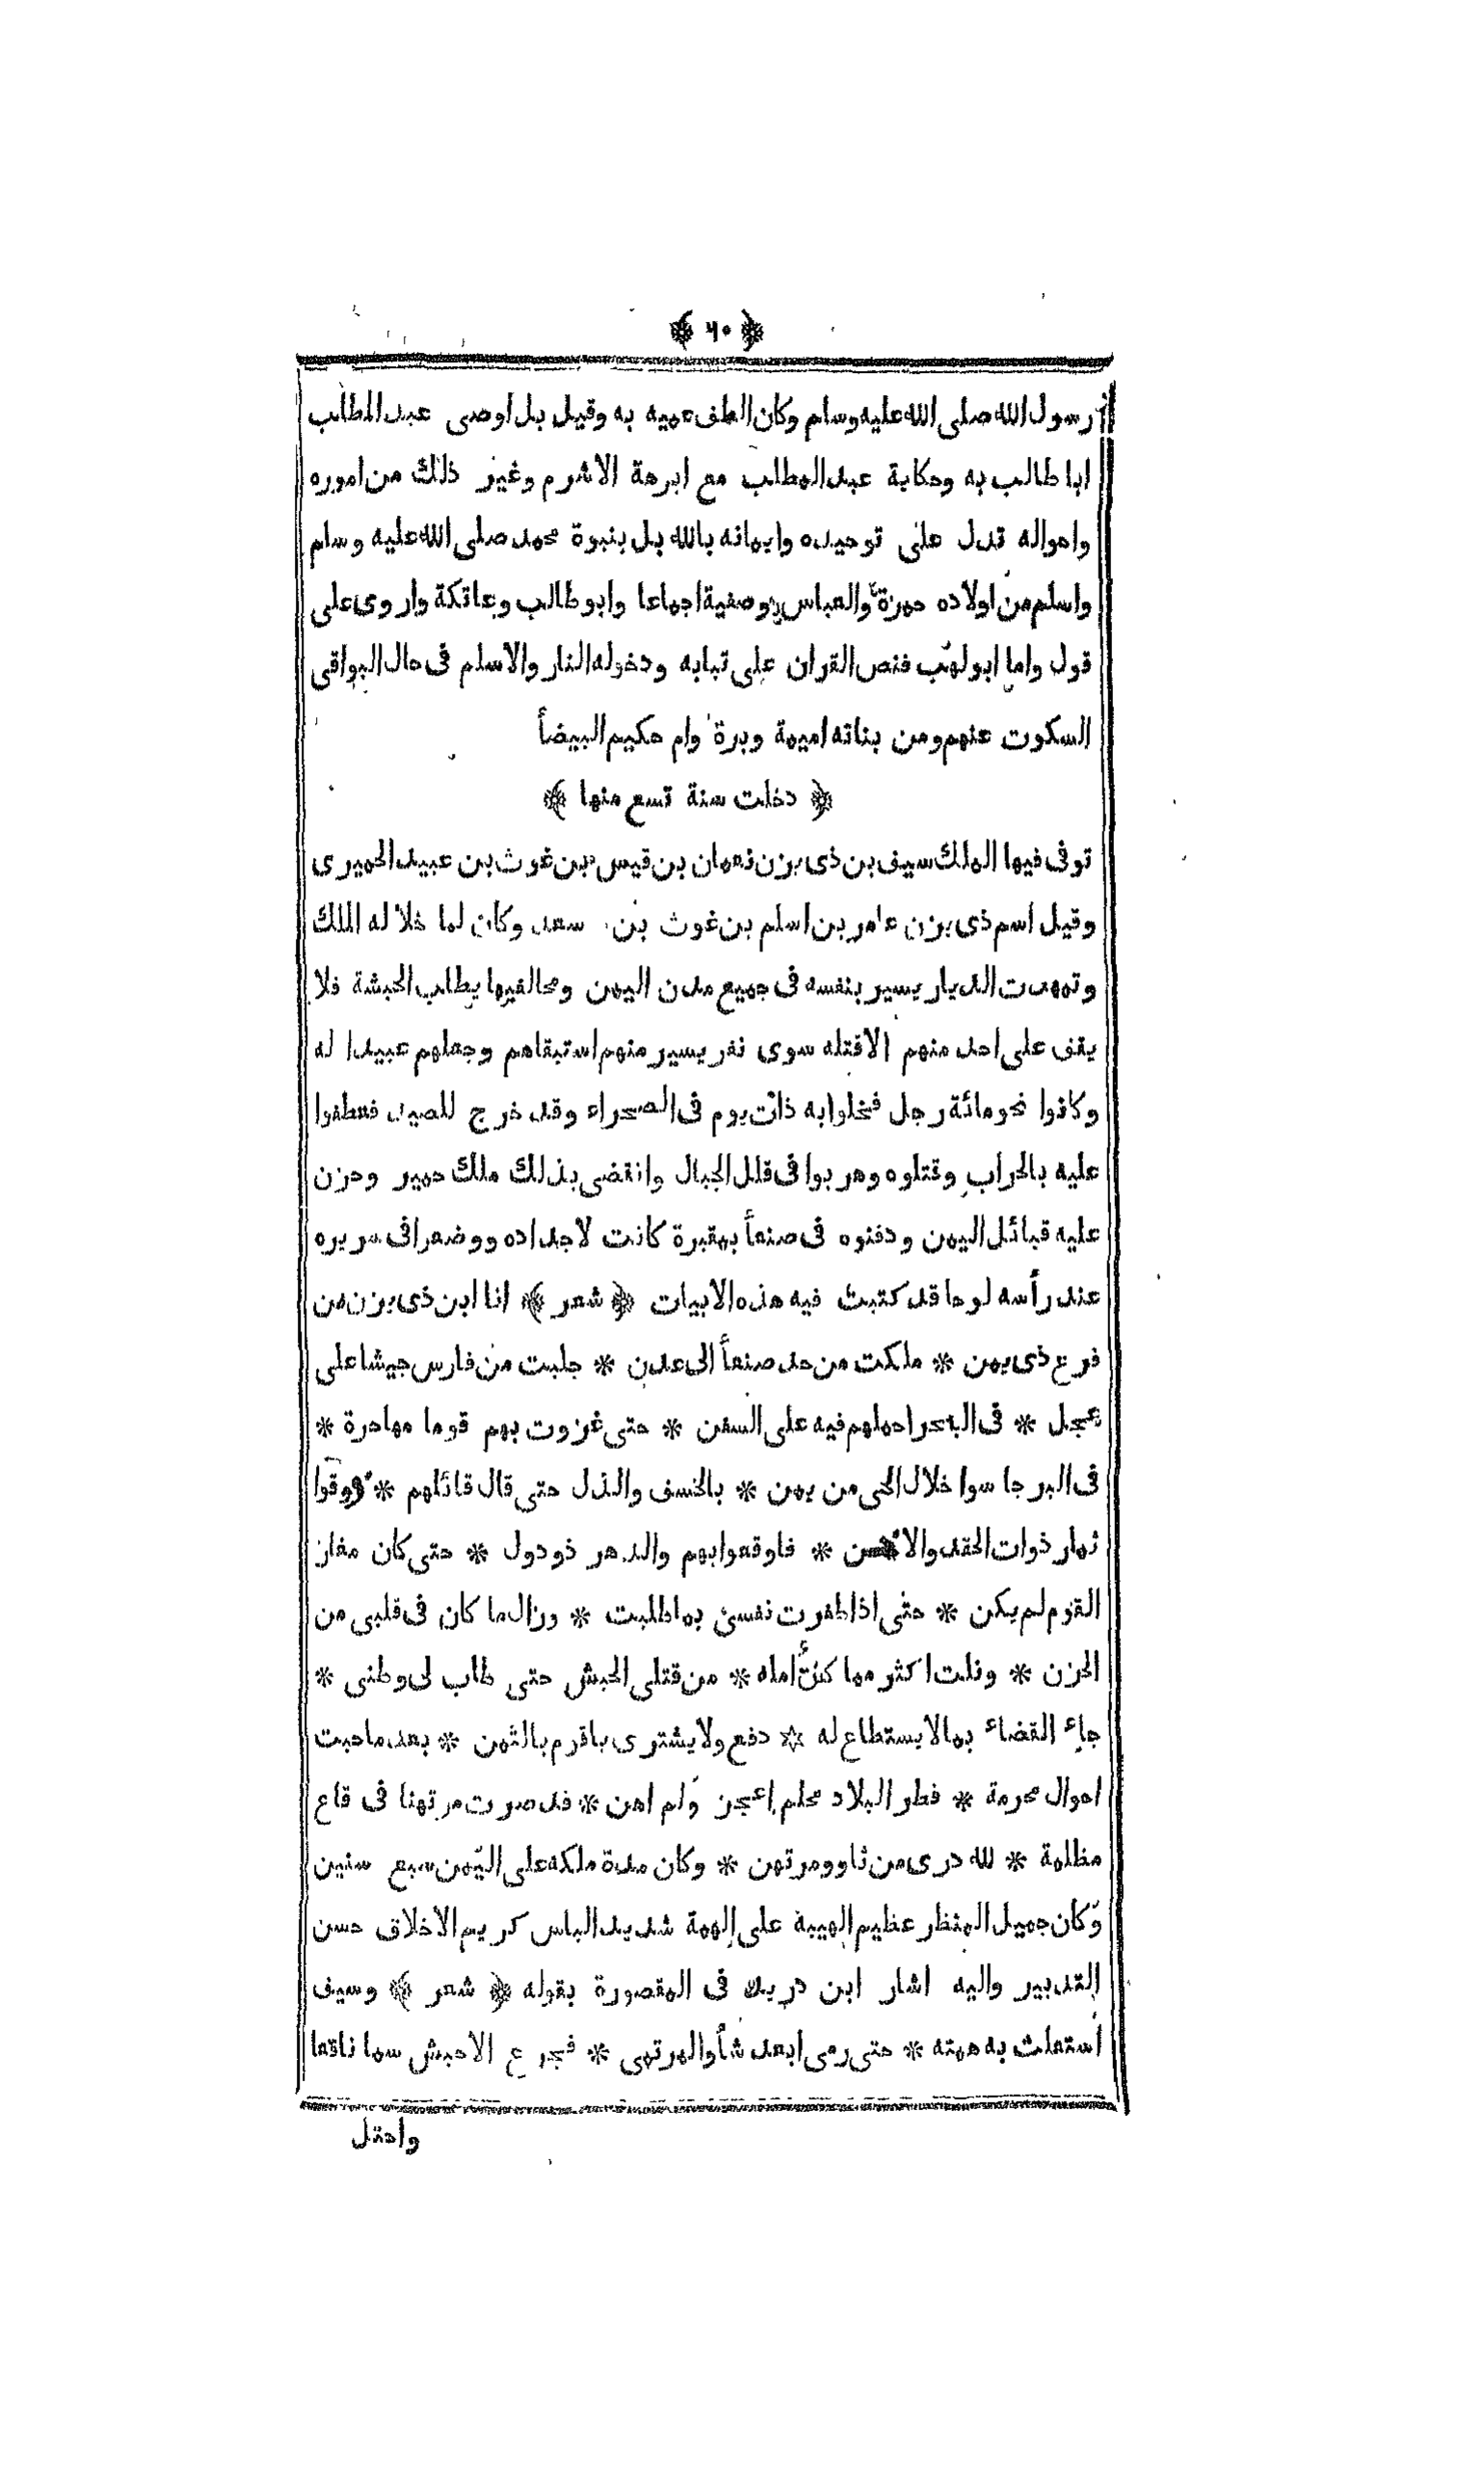 ﴿ ٦٠ ﴾
رسول الله صلى الله عليه وسلم وكان الطف عميه به وقيل بل اوصى عبد المطلب
ابا طالب به وحكاية عبد المطلب مع ابرهة الاشرم وغير ذلك من اموره
واحواله تدل على توحيده وايمانه بالله بل بنبوة محمد صلى الله عليه وسلم
واسلم من اولاده حمزة والعباس وصفية اجماعا وابو طالب وعاتكة واروى على
قول واما ابو لهب فنص القران على تبابه ودخوله النار والاسلم فى حال البواقى
السكوت عنهم ومن بناته اميمة وبرة وام حكيم البيضأ
﴿ دخلت سنة تسع منها ﴾
توفى فيها الملك سيف بن ذى يزن نعمان بن قيس بن غوث بن عبيد الحميرى
وقيل اسم ذى يزن عامر بن اسلم بن غوث بن سعد وكان لما خلا له الملك
وتمهدت الديار يسير بنفسه فى جميع مدن اليمن ومخالفيها يطلب الحبشة فلا
يقف على احد منهم الا قتله سوى نفر يسير منهم استبقاهم وجعلهم عبيدا له
وكانوا نحو مائة رجل فخلوا به ذات يوم فى الصحراء وقد خرج للصيد فعطفوا
عليه بالحراب وقتلوه وهربوا فى قلل الجبال وانقضى بذلك ملك حمير وحزن
عليه قبائل اليمن ودفنوه فى صنعأ بمقبرة كانت لاجداده ووضعوا فى سريره
عند رأسه لوحا قد كتبت فيه هذه الابيات ﴿ شعر ﴾ انا ابن ذى يزن من
فرع ذى يمن * ملكت من حد صنعأ الى عدن * جلبت من فارس جيشا على
عجل * فى البحر احملهم فيه على السفن * حتى غزوت بهم قوما مهادرة *
فى البر جاسوا خلال الحى من يمن * بالخسف والذل حتى قال قائلهم * ذوقوا
ثمار ذوات الحقد والاحن * فاوقعوا بهم والدهر ذو دول * حتى كان مغار
القوم لم يكن * حتى اذا ظفرت نفسى بما طلبت * وزال ما كان فى قلبى من
الحزن * ونلت اكثر مما كنت أمله * من قتلى الحبش حتى طاب لى وطنى *
جاء القضاء بما لا يستطاع له * دفع ولا يشترى ياقوم بالثمن * بعد ما حبت
احوال محرمة * فطر البلاد محلم اعجز ولم اهن * قد صرت مرتهنا فى قاع
مظلمة * لله درى من ثاو ومرتهن * وكان مدة ملكه على اليمن سبع سنين
وكان جميل المنظر عظيم الهيبة على الهمة شديد الباس كريم الاخلاق حسن
التدبير واليه اشار ابن دريد فى المقصورة بقوله ﴿ شعر ﴾ وسيف
استعلت به همته * حتى رمى ابعد شأو المرتمى * فجرع الاحبش سما ناقعا
واحتل